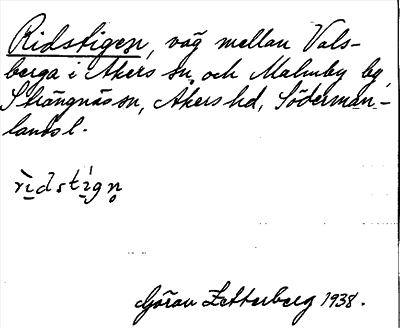 Ridstigen, väg mellan Vals-
berga i Åkers sn. och Malmby by,
Strängnäs sn, Åkers hd, Söderman-
lands l.
rìdstígn̥
Göran Zetterberg 1938.